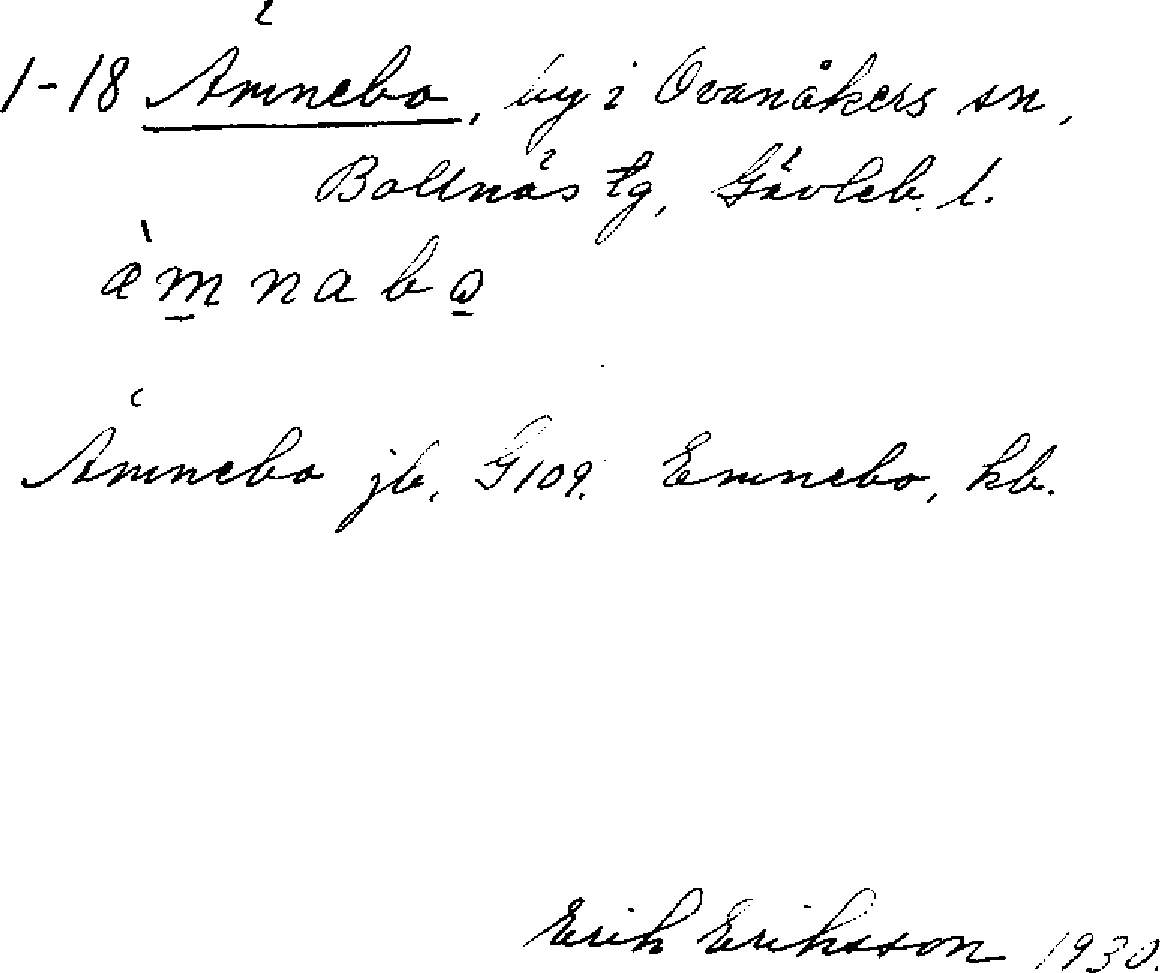 1-18 Ämnebo, by i Ovanåkers sn,
Bollnäs tg, Gävleb. l.
æ̀m̲nabo̲
Ämnebo jb, G109. Emnebo, kb.
Erik Eriksson 1930.